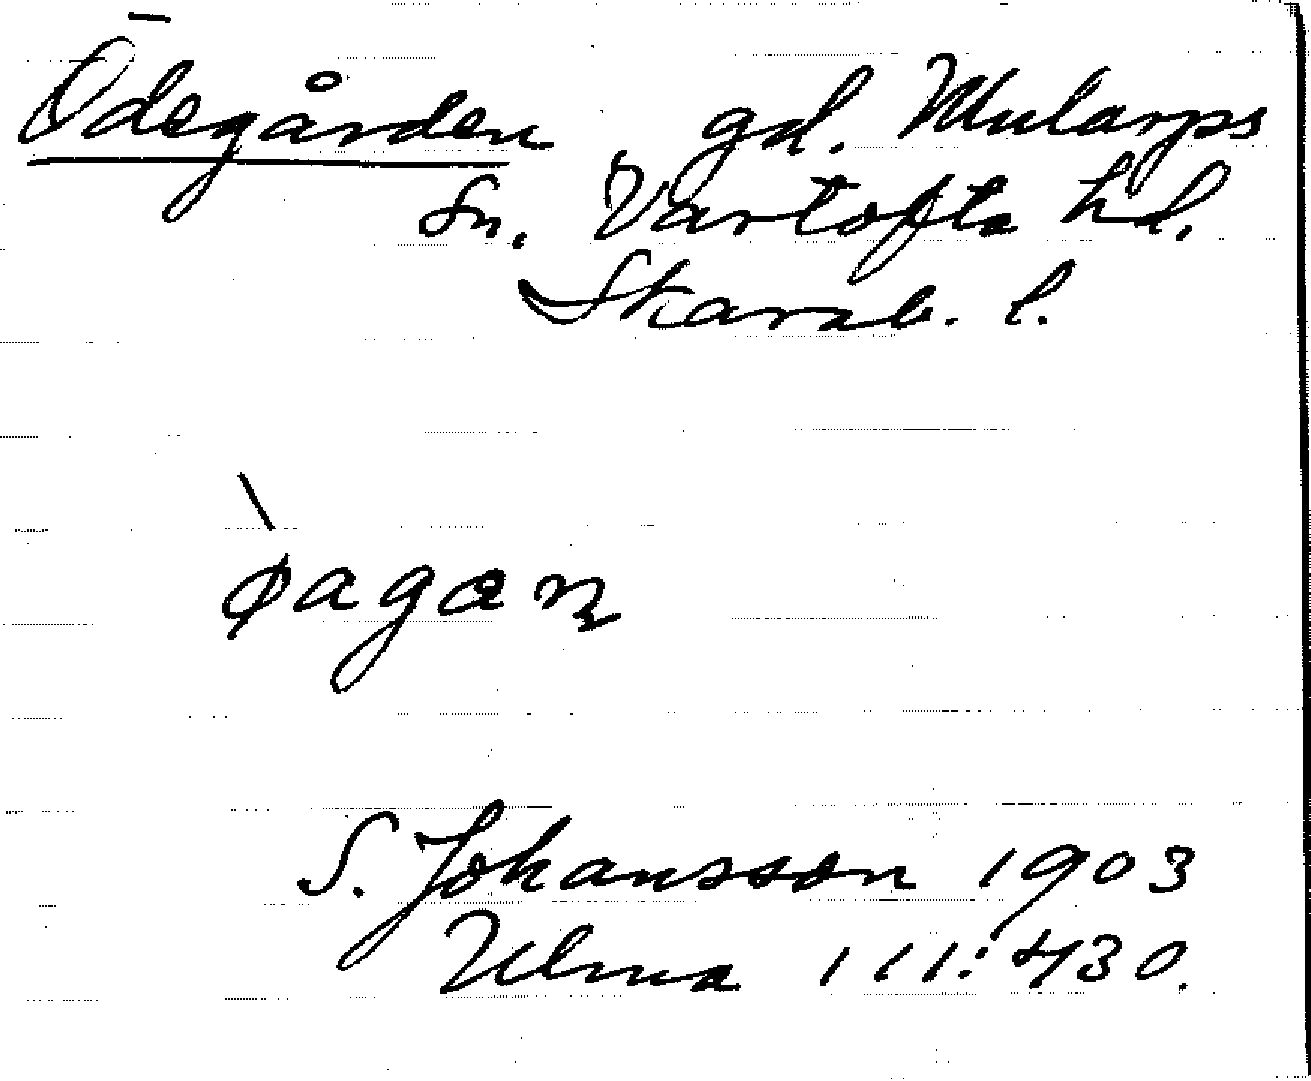 Ödegården gd. Mularps
sn. Vartofta hd.
Skarab. l.
S. Johansson 1903
Ulma 111:430.